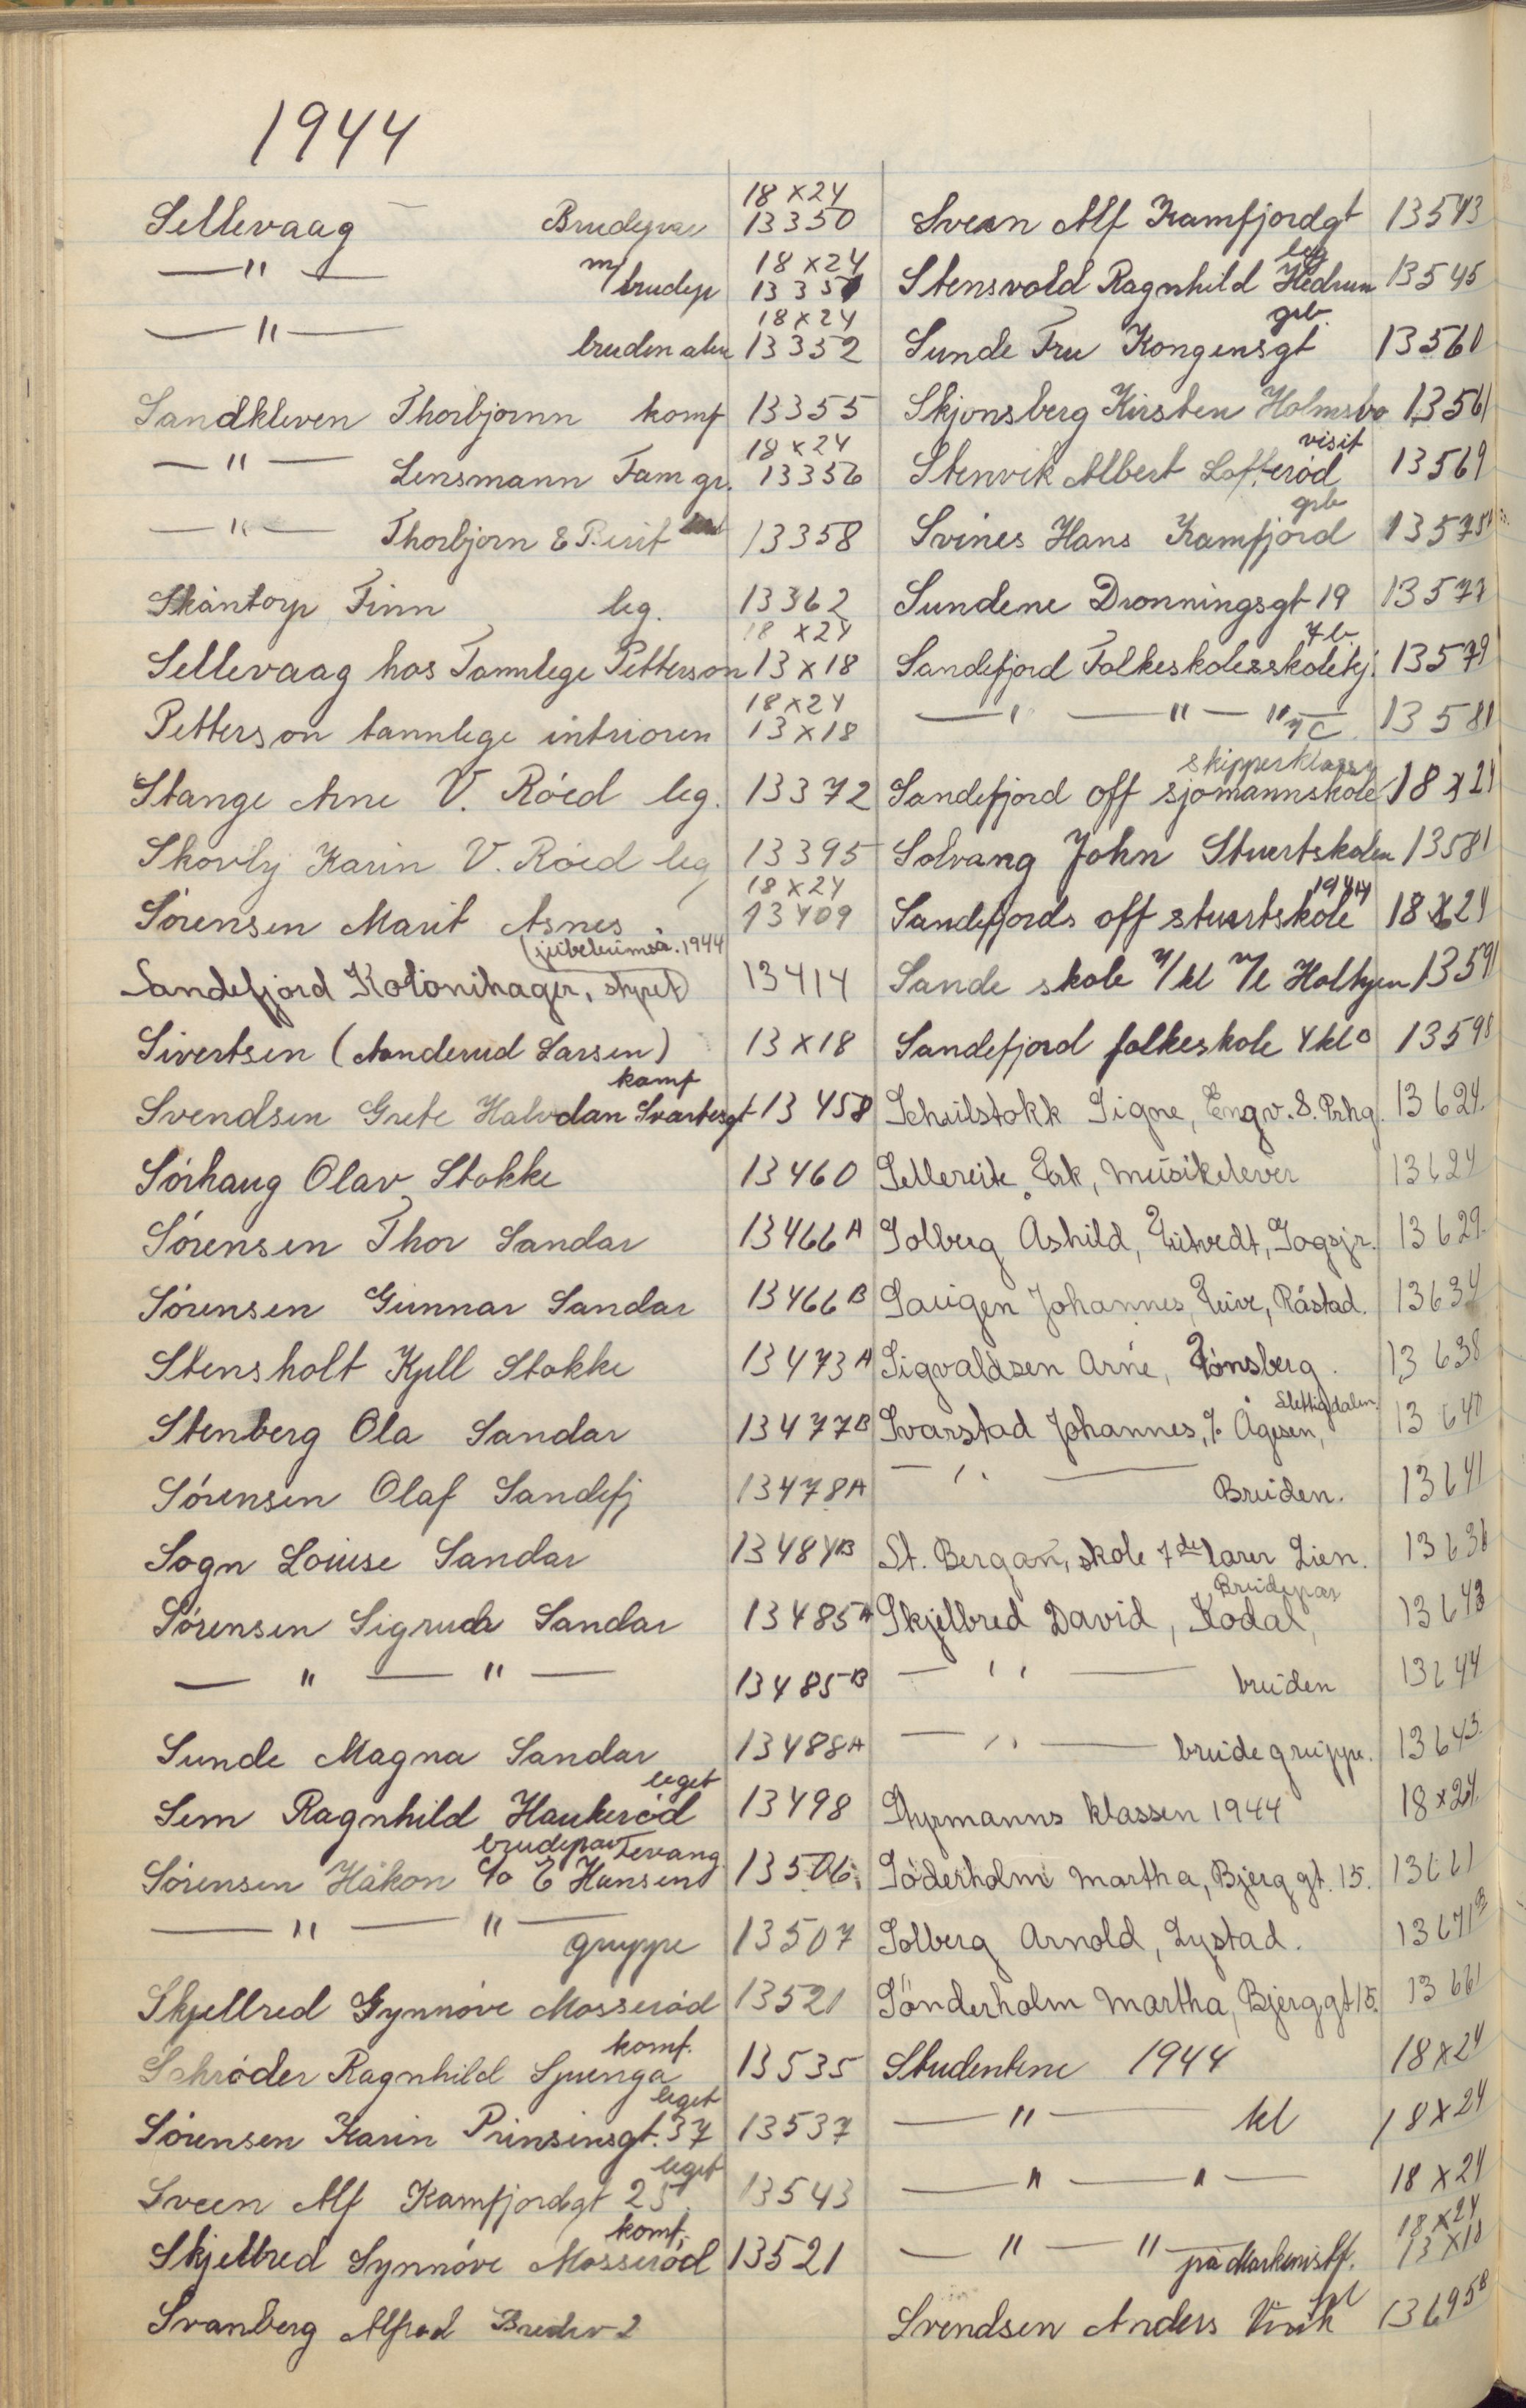 1944
18 x 24
Sellevaag Brudepar 13350
18 x 24
—"— m/brudep 13351
18 x 24
—"— bruden alene 13352
Sandkleven Thorbjørnn komf 13355
18 x 24
—"— Lensmann Fam gr. 13356
—"— Thorbjørn & Berit 13358
Skåntorp Finn leg. 13362
18 x 24
Sellevaag hos Tannlege Petterson 13 x 18
18 x 24
Petterson tannlege intriøren 13 x 18
Stange Arne V. Röed leg. 13372
Skovly Karin V. Röed leg 13395
18 x 24
Sørensen Marit Asnes 13409
(jubeleumså. 1944
Sandefjord Kolonihager, styret) 13414
Sivertsen (Anderud Larsen) 13 x 18
komf
Svendsen Grete Halvdan Svartesgt 13458
Sörhaug Olav Stokke 13460
Sörensen Thor Sandar 13466 A
Sörensen Gunnar Sandar 13466 B
Stensholt Kjell Stokke 13473 A
Stenberg Ola Sandar 13477 B
Sörensen Olaf Sandefj 13478 A
Sogn Louise Sandar 13484 B
Sörensen Sigrud Sandar 13485 A
— " — " — 13485 B
Sunde Magna Sandar 13488 A
leget
Sem Ragnhild Haukeröd 13498
brudepar Tevang
Sörensen Håkon c/o E Hansen 13506
— " — " — gruppe 13507
Skjellred Gynnöve Mosseröd 13521
komf.
Schröder Ragnhild Sjuenga 13535
leget
Sörensen Karin Prinsensgt. 37 13537
leget
Sveen Alf Kamfjordgt 25 13543
komf.
Skjelbred Synnöve Mosseröd 13521
Svanberg Alfred Bredev 2
Svean Alf Kamfjordgt 13543
leg
Stensvold Ragnhild Hedrum 13545
grb.
Sunde Fru Kongensgt 13560
Skjønsberg Kirsten Holmsbo 13561
visit
Stenvik Albert Lofteröd 13569
grb
Svines Hans Kamfjord 13575
Sundene Dronningsgt 19 13577
7 b
Sandefjord Folkeskolesskolekj. 13579
— " — " — " 7 C 13581
skipperklasse
Sandefjord off sjømannskole 18 x 24
Solvang John Stuertskolen 13581
1944
Sandefjords off stuertskole 18 x 24
Sande skole 7/kl Holtjen 1359
Sandefjord folkeskole 4 kl 1359
Schulstokk Signe, Engv. 8. Prhg. 13624.
Sellereite Erk, Musikelever 13624
Solberg Åshild, Tutvedt, Jogsjr. 13629.
Saugen Johannes, Tuve, Råstad. 13634
Sigvaldsen Arne, Tönsberg. 13638
Slettigdalen.
Svarstad Johannes, % Ågesen, 13640
— " — Bruden. 13641
St. Bergan, skole 7de lærer Lien. 13636
Brudepar
Skjelbred David, Kodal, 13643
— " — bruden 13644
— " — brudegruppe. 13645.
Styrmanns klassen 1944 18 x 24.
Söderholm Martha, Bjerggt. 15. 13661
Solberg Arnold, Lystad. 13671 B
Sönderholm Martha, Bjerggt 15. 13661
Studentene 1944 18 x 24
— " — kl 18 x 24
— " — " — 18 x 24
18 x 24
— " — " — på Markenistf. 13 x 18
Svendsen Anders 13695 B